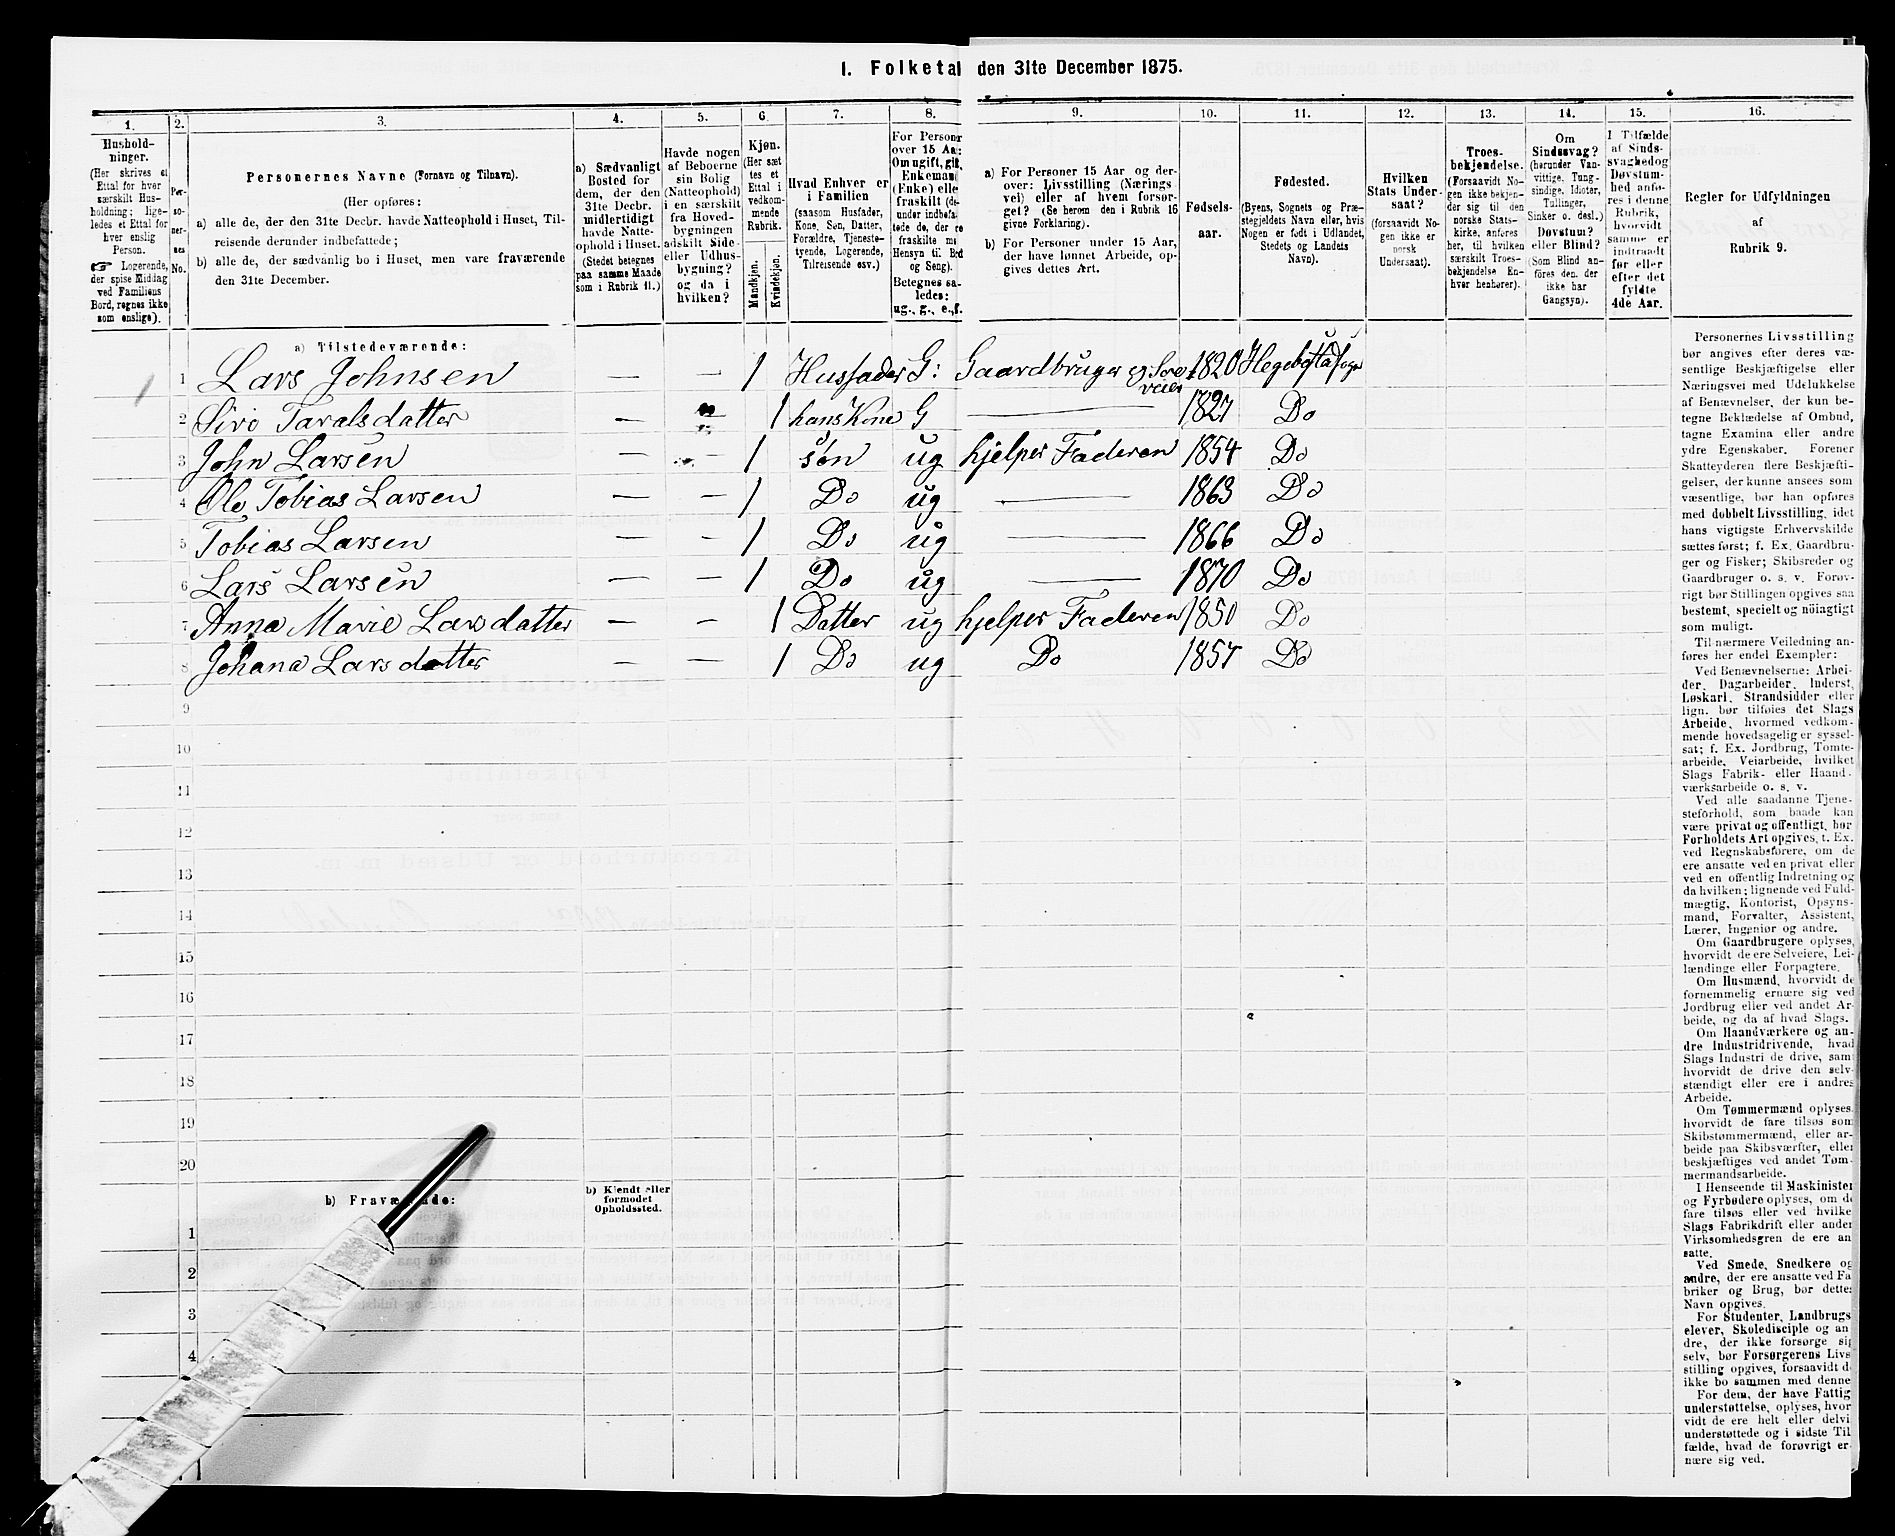 1. Folketal den 31te December 1875.
1.
2.
3.
4.
5.
6.
7.
8.
9.
10.
11.
12.
13.
14.
15.
16.
Hushold-
ninger.
(Her skrives et
Ettal for hver
særskilt Hus-
holdning; lige-
ledes et Ettal for
hver enslig
Person.
☞ Logerende,
der spise Middag
ved Familiens
Bord, regnes ikke
som enslige).
Per-
so-
ner-
nes
No.
Personernes Navne (Fornavn og Tilnavn).
(Her opføres:
a) alle de, der den 31te Decbr. havde Natteophold i Huset, Til-
reisende derunder indbefattede;
b) alle de, der sædvanlig bo i Huset, men vare fraværende
den 31te December.
a) Sædvanligt
Bosted for
dem, der den
31te Decbr.
midlertidigt
havde Natte-
ophold i Huset.
(Stedet betegnes
paa samme Maade
som i Rubrik 11.)
Havde nogen
af Beboerne
sin Bolig
(Natteophold)
i en særskilt
fra Hoved-
bygningen
adskilt Side-
eller Udhus-
bygning?
og da i
hvilken?
Kjøn.
(Her sæt
tes et
Ettal i
vedkom-
mende
Rubrik.
Mandkjøn.
Kvindekjøn.
Hvad Enhver er
i Familien
(saasom Husfader,
Kone, Søn, Datter,
Forældre, Tjeneste-
tyende, Logerende,
Tilreisende osv.)
For Personer
over 15 Aar:
Om ugift, gift,
Enkemand
(Enke) eller
fraskilt
Betegnes sa-
ledes:
ug., g., e., f.
a) For Personer 15 Aar og der-
over: Livsstilling (Nærings
vei) eller af hvem forsør-
get? (Se herom den i Rubrik 16
givne Forklaring).
b) For Personer under 15 Aar,
der have lønnet Arbeide, op-
gives dettes Art.
Fødsels-
aar.
Fødested.
(Byens, Sognets og Præ-
stegjeldets Navn eller, hvis
Nogen er født i Udlandet,
Stedets og Landets
Navn).
Hvilken
Stats Under-
saat?
(forsaavidt No-
gen ikke er
norsk
Undersaat).
Troes-
bekjendelse.
(Forsaavidt No-
gen ikke bekjen-
der sig til den
norske Stats-
kirke, anføres
her, til hvilken
særskilt Troes-
bekjendelse En-
hver henhører).
Om
Sindssvag?
(herunder Van-
vittige, Tung-
sindige, Idioter,
Tullinger,
Sinker o. desl.)
Døvstum?
eller Blind?
(Som Blind an-
føres den, der
ikke har
Gangsyn).
I Tilfælde
af Sinds-
svaghed og
Døvstum-
hed anfø-
res i denne
Rubrik,
hvorvidt
samme er
indtraadt
før eller
efter det
fyldte
4de Aar.
Regler for Udfyldningen
af
Rubrik 9.
a) Tilstedeværende:
1 Lars Johnsen — — 1 Husfader G: Gaardbruger og 1820
2 Siro Taralsdatter — — 1 hans Kone G — 1827 Do
3 John Larsen — — 1 søn ug hjelper Faderen 1854 Do
4 Ole Tobias Larsen — — 1 Do ug — 1863 Do
5 Tobias Larsen — — 1 Do ug — 1866 Do
6 Lars Larsen — — 1 Do ug — 1870 Do
7 Anna Marie Larsdatter — — 1 Datter ug hjelper Faderen 1850 Do
8 Johana Larsdatter — — 1 Do ug Do 1857 Do
9
10
11
12
13
14
15
16
17
18
19
20
b) Fraværende:
b) Kjendt eller
formodet
Opholdssted.
1
2
3
4
Personernes Livsstilling
bør angives efter deres væ-
sentlige Beskjæftigelse eller
Næringsvei med Udelukkelse
af Benævnelser, der kun be-
tegne Beklædelse af Ombud,
tagne Examina eller andre
ydre Egenskaber. Forener
Skatteyderen flere Beskjæfti-
gelser, der kunne ansees som
væsentlige, bør han opføres
med dobbelt Livsstilling, idet
hans vigtigste Erhvervskilde
sættes først; f. Ex. Gaardbru-
ger og Fisker; Skibsreder og
Gaardbruger o. s. v. Forøv-
rigt bør Stillingen opgives saa
bestemt, specielt og nöiagtigt
som muligt.
Til nærmere Veiledning an-
føres her endel Exempler:
Ved Benævnelserne: Arbei-
der, Dagarbeider, Inderst,
Løskarl, Strandsidder eller
lign. bør tilføies det Slags
Arbeide, hvormed vedkom-
mende hovedsagelig er syssel-
sat; f. Ex. Jordbrug, Tomte-
arbeide, Veiarbeide, hvilket
Slags Fabrik- eller Haand-
værksarbeide o. s. v.
Ved alle saadanne Tjene-
steforhold, som baade kan
være privat og offentligt, bør
Forholdets Art opgives, t. Ex.
ved Regnskabsførere, om de
ere ansatte ved en privat eller
ved en offentlig Indretning og
da hvilken; lignende ved Fuld-
mægtig, Kontorist, Opsyns-
mand, Forvalter, Assistent,
Lærer, Ingeniør og andre.
Om Gaardbrugere oplyses,
hvorvidt de ere Selveiere, Lei-
lændinge eller Forpagtere.
Om Husmænd, hvorvidt de
fornemmelig ernære sig ved
Jordbrug eller ved andet Ar-
beide, og da af hvad Slags.
Om Haandværkere og an-
dre Industridrivende, hvad
Slags Industri de drive, samt
hvorvidt de drive den selv-
stændigt eller ere i andres
Arbeide.
Om Tømmermænd oplyses,
hvorvidt de fare tilsøs som
Skibstømmermænd, eller ar-
beide paa Skibsværfter, eller
beskjæftiges ved andet Tøm-
mermandsarbeide.
I Henseende til Maskinister
og Fyrbødere oplyses, om de
fare tilsøs eller ved hvilke
Slags Fabrikdrift eller anden
Virksomhedsgren de ere an
satte.
Ved Smede, Snedkere og
andre, der ere ansatte ved Fa
briker og Brug, bør dettes
Navn opgives.
For Studenter, Landbrugs
elever, Skoledisciple og an
dre, der ikke forsørge sig
selv, bør Forsørgerens Livs
stilling opgives, forsaavidt de
ikke bo sammen med denne
For dem, der have Fattig
understøttelse, oplyses, hvor
vidt de ere helt eller delvi
understøttede og i sidste Til
fælde, hvad de forøvrigt er-
nære sig ved.